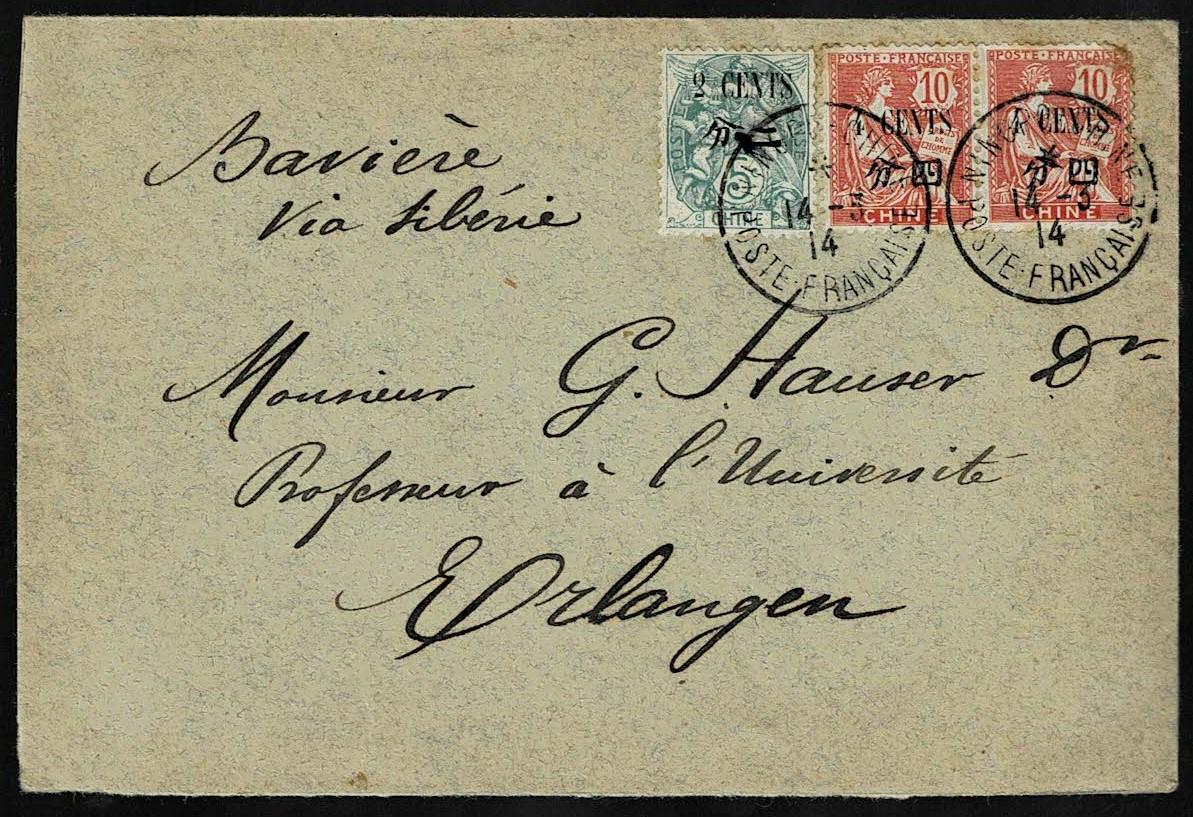 2 CENTS
分二
POSTE
5
CHINE
POSTE FRANÇAISE
10
4 CENTS
分四
CHINE
POSTE FRANÇAISE
10
4 CENTS
分四
CHINE
CHINE
14-3
14
POSTE·FRANÇAISE
CHINE
14-3
14
POSTE·FRANÇAISE
Bavière
Via Sibérie
Monsieur G. Hauser Dr
Professeur à l'Université
Erlangen